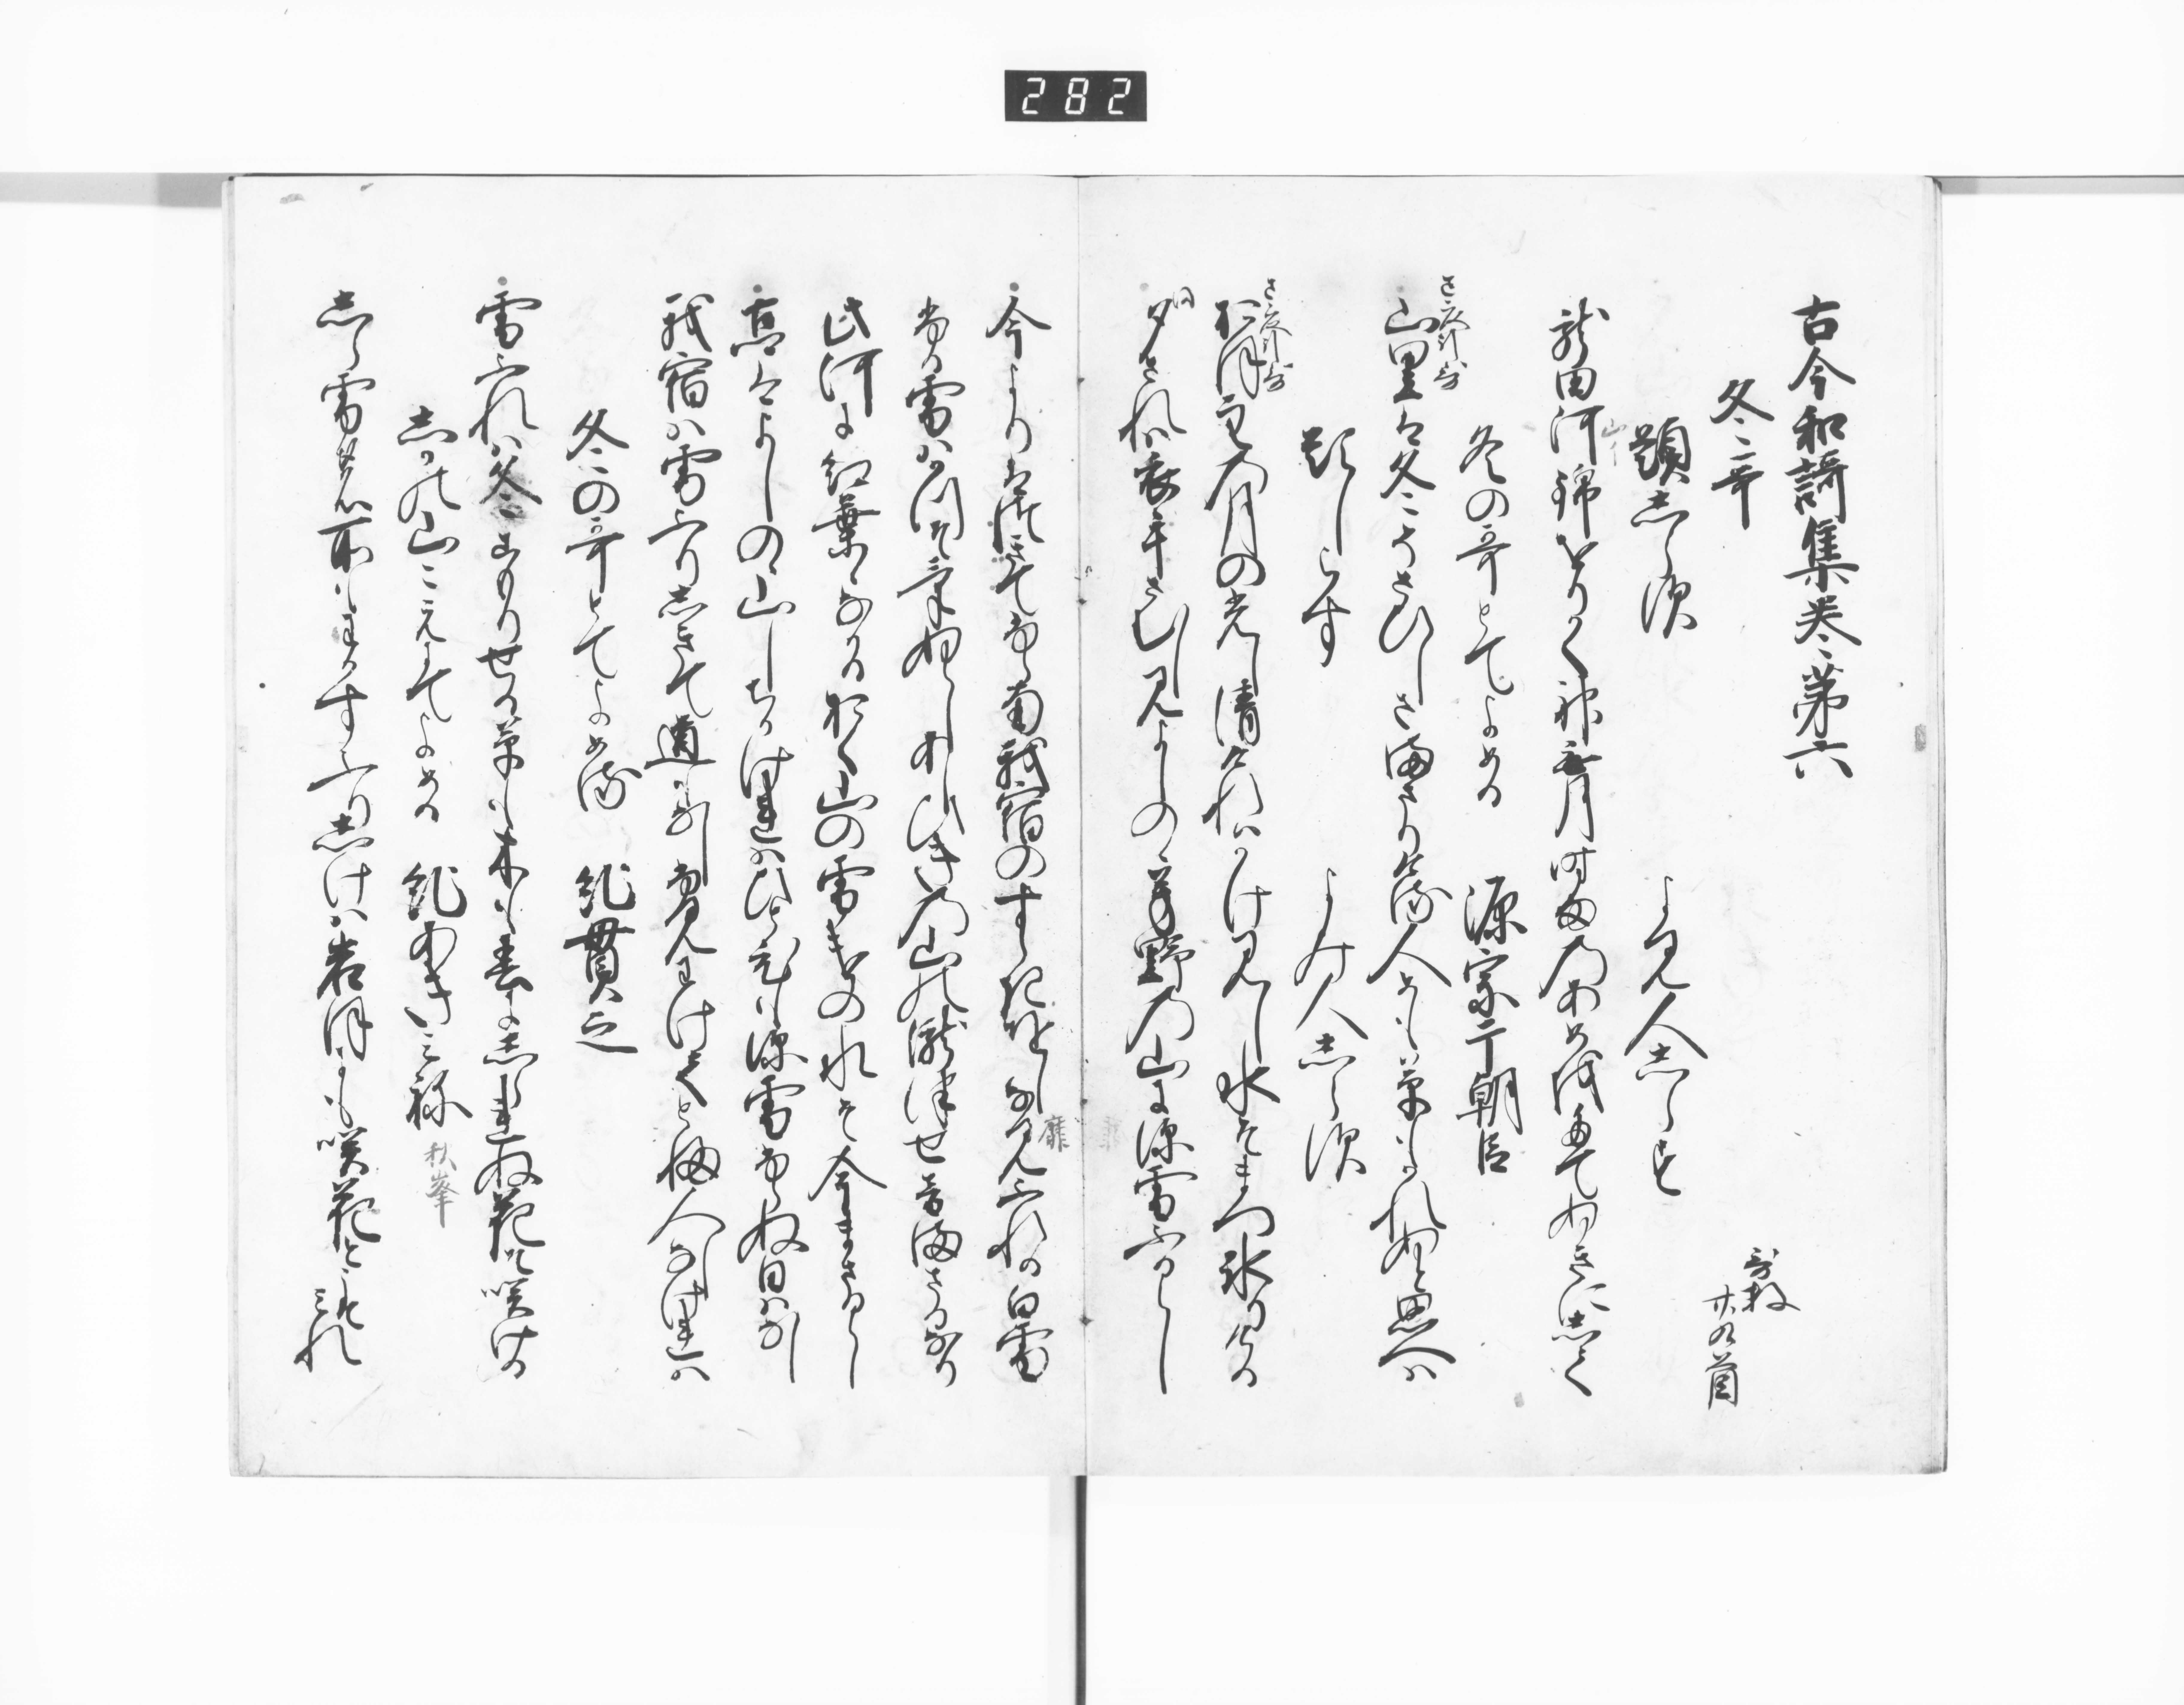 282
古今和謌集巻第六
冬哥
哥数
廿九首
題しらす
よみ人しらす
龍田河錦をりかく神無月時雨のあめをたてぬきにして
山イ
冬の哥とてよめる
源宗于朝臣
山里は冬そさひしさまさりける人めも草もかれぬと思へは
題しらす
よみ人しらす
おほそらの月の光し清けれはかけ見し水そまつ氷りける
夕されは衣手さむしみよしのゝ吉野の山にみ雪ふるらし
今よりはつきてふらなん我宿のすゝきをしなみふれる白雪
靡
ふる雪はかつそきえぬらしあしひきの山の瀧津せ音まさるなり
此河に紅葉ゝなかるおく山の雪きの水そ今まさるらし
古郷はよしのゝ山しちかけれはひと日もみ雪ふらぬ日はなし
我宿は雪ふりしきて道もなしふみわけてとふ人しなけれは
冬の哥とてよめる
紀貫之
雪ふれは冬こもりせる草も木も春にしられぬ花そ咲ける
しかの山こえにてよめる
紀あきみね
秋峯
しら雪の所もわかすふりしけは岩ほにも咲花とこそみれ